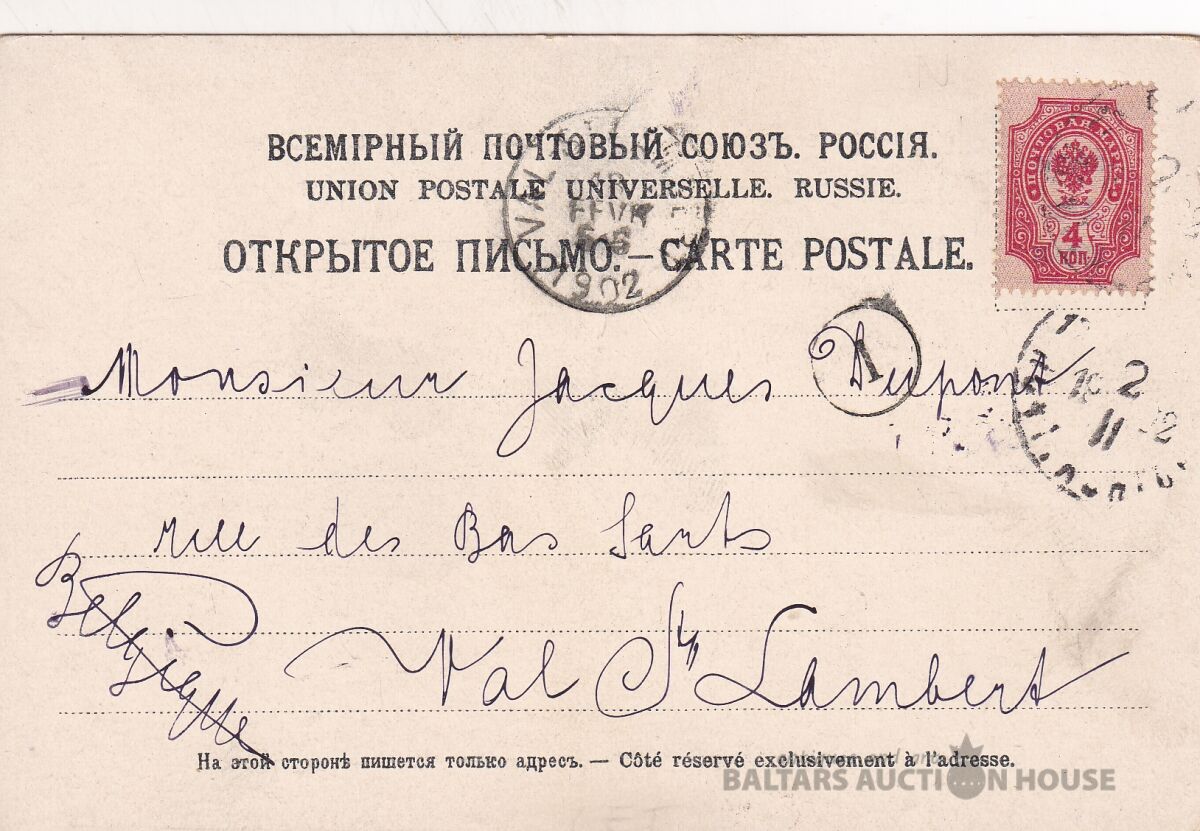 ВСЕМІРНЫЙ ПОЧТОВЫЙ СОЮЗЪ. РОССІЯ.
UNION POSTALE UNIVERSELLE. RUSSIE.
ОТКРЫТОЕ ПИСЬМО.—CARTE POSTALE.
ПОЧТОВАЯ МАРКА
4
КОП.
VAL
FEVR
5-6
1902
1
Monsieur Jacques Dupont
2
11
rue des Bas Sarts
Belgique
Val St Lambert
На этой сторонѣ пишется только адресъ. — Côté réservé exclusivement à l'adresse.
BALTARS AUCTION HOUSE